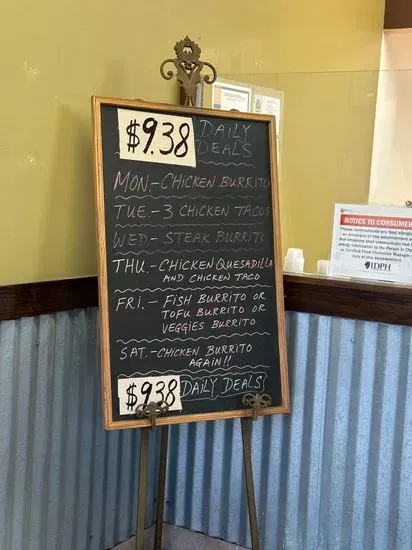 $9.38 DAILY DEALS
MON.-CHICKEN BURRITO
TUE.-3 CHICKEN TACOS
WED.-STEAK BURRITO
THU.-CHICKEN QUESADILLA
AND CHICKEN TACO
FRI.-FISH BURRITO OR
TOFU BURRITO OR
VEGGIES BURRITO
SAT.-CHICKEN BURRITO
AGAIN!!
$9.38 DAILY DEALS
NOTICE TO CONSUMER
Please communicate any food allergies
an employee of this establishment
that employee shall communicate that
allergy information to the Person in Charge
or Certified Food Protection Manager
duty at this establishment.
IDPH